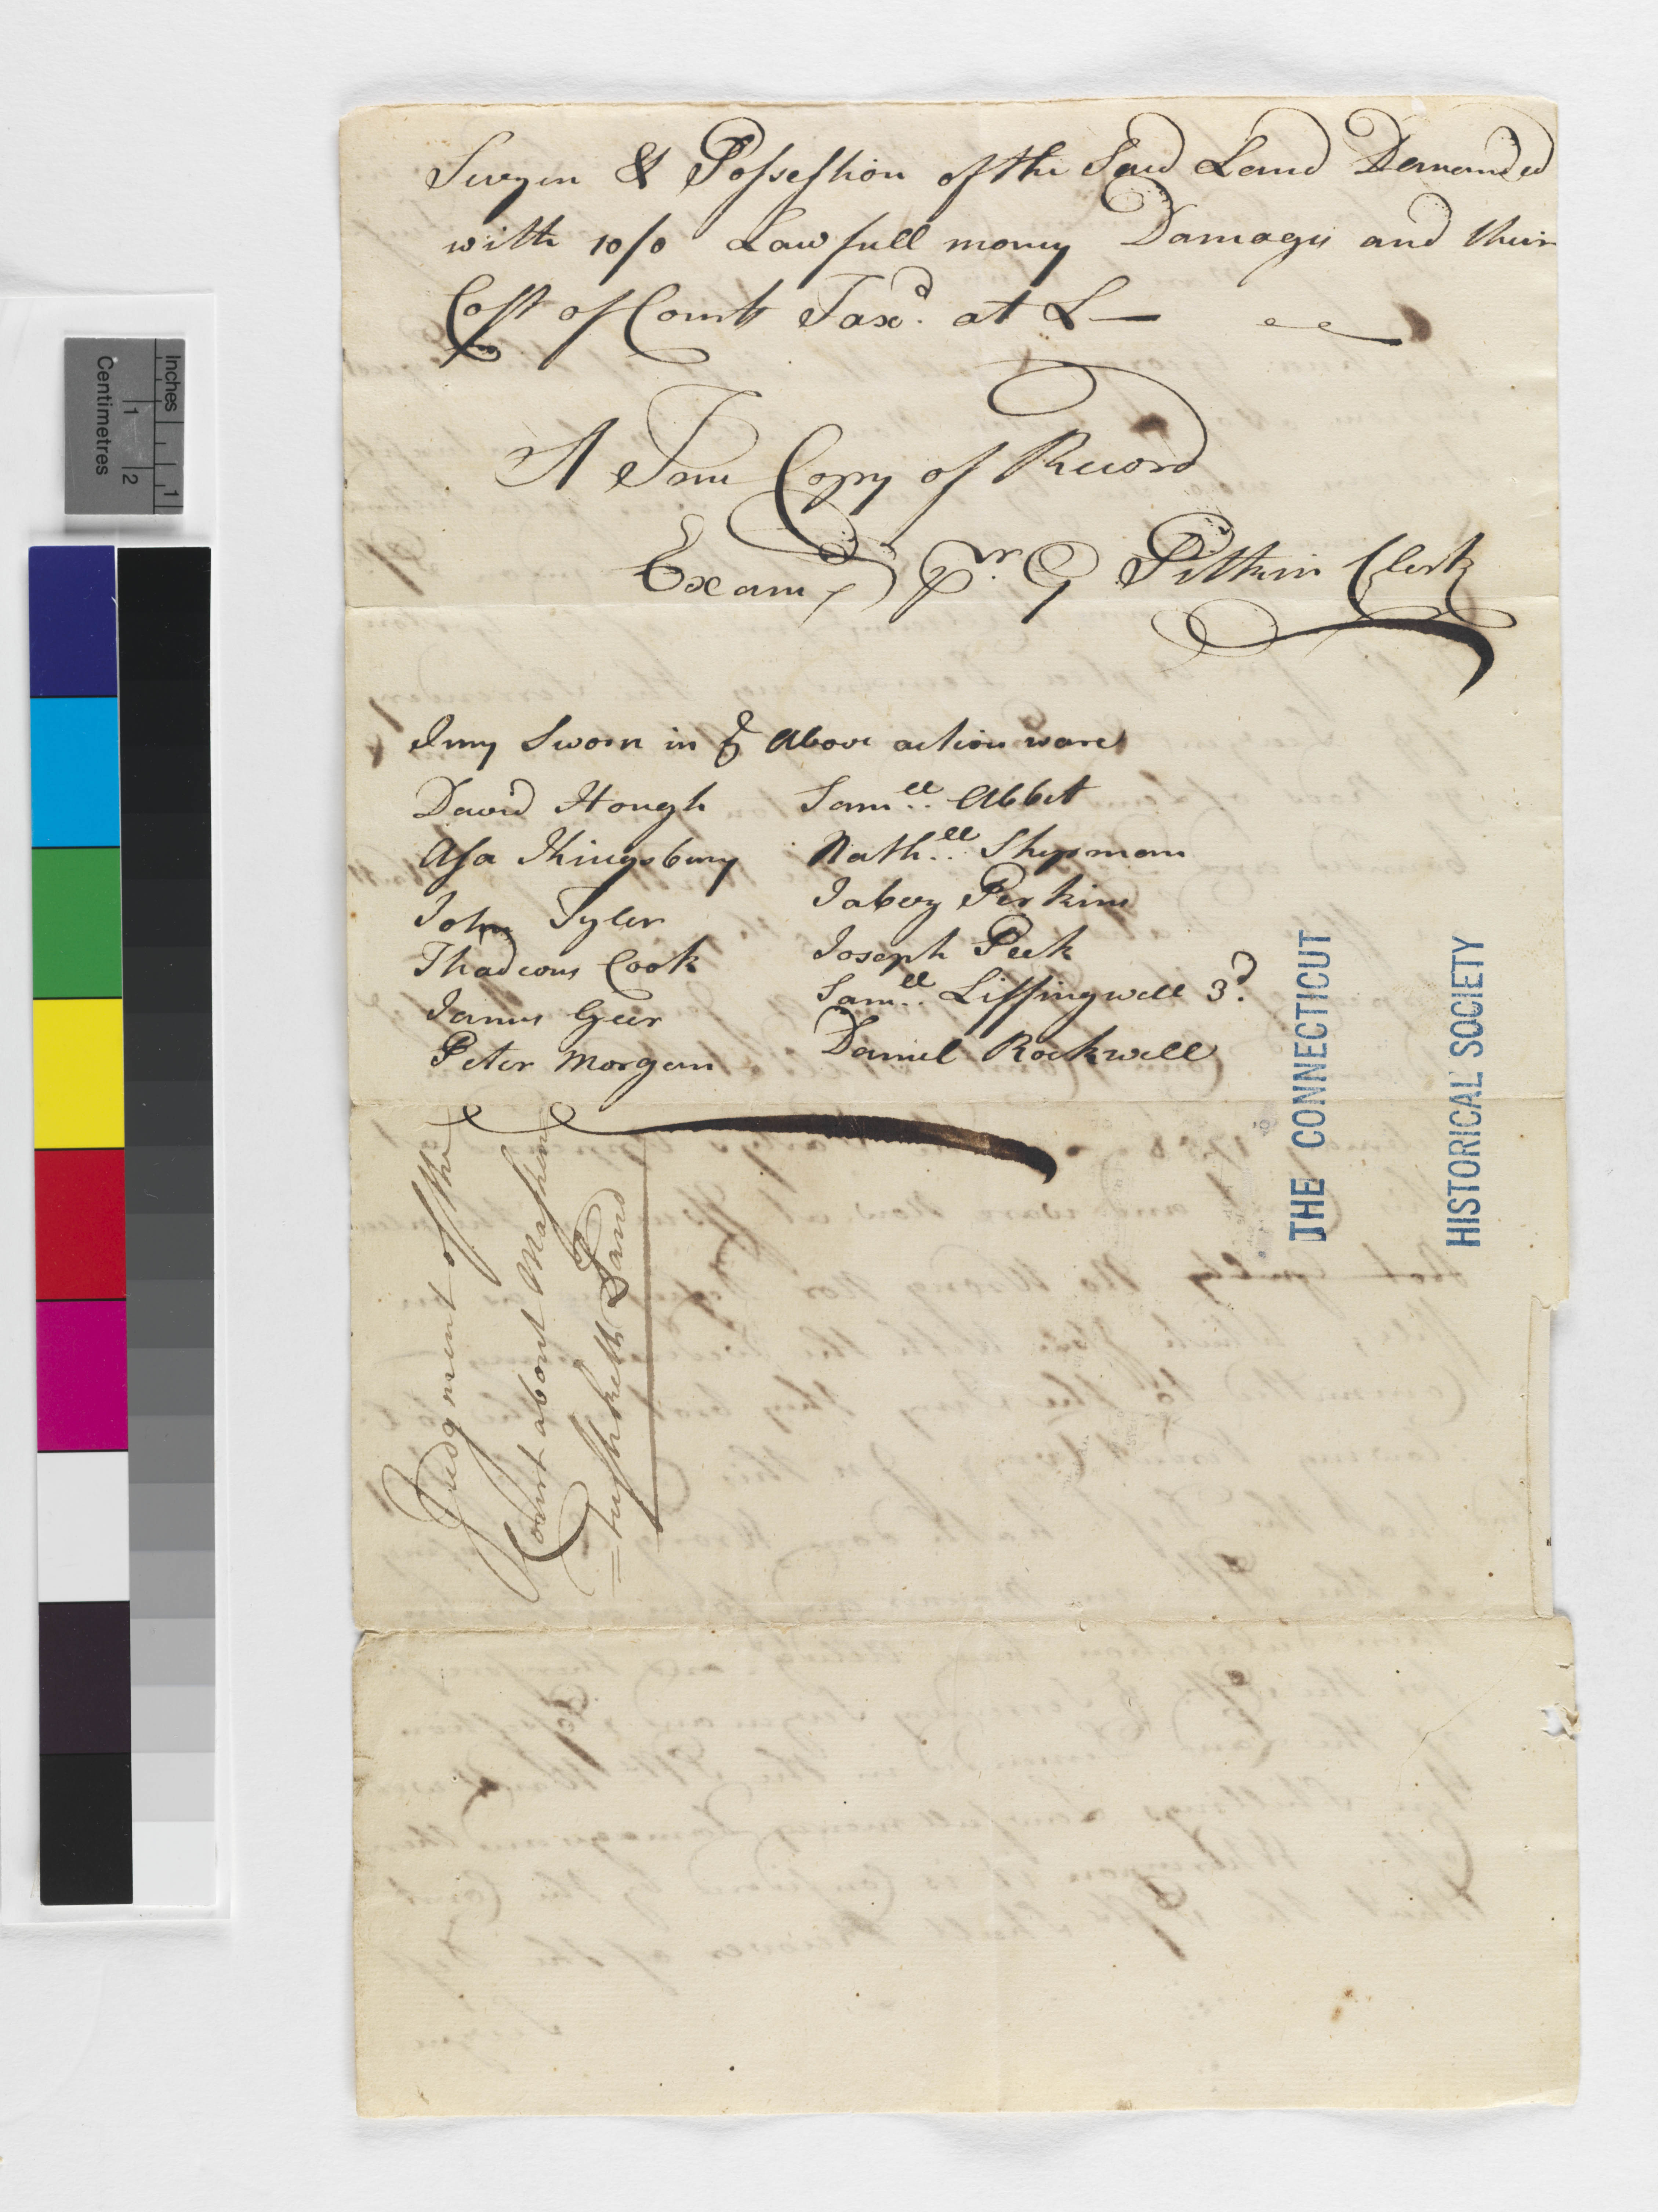 Seizin & Possession of the Said Land Demanded
with 10/0 Lawfull money Damages and their
Cost of Court Taxd. at £—
A True Copy of Record
Exam pr. G Pitkin Clerk
Jury Sworn in ye Above action ware
David Hough
Asa Kingsbury
John Tyler
Thadeous Cook
James Geer
Peter Morgan
Samll. Abbet
Nathll. Shipman
Jabez Perkins
Joseph Peck
Samll. Liffingwell 3d.
Daniel Rockwell
Judgment of the
Court about Mashan
=tuxsketts Land
THE CONNECTICUT
HISTORICAL SOCIETY
Inches
1
Centimetres
1
2